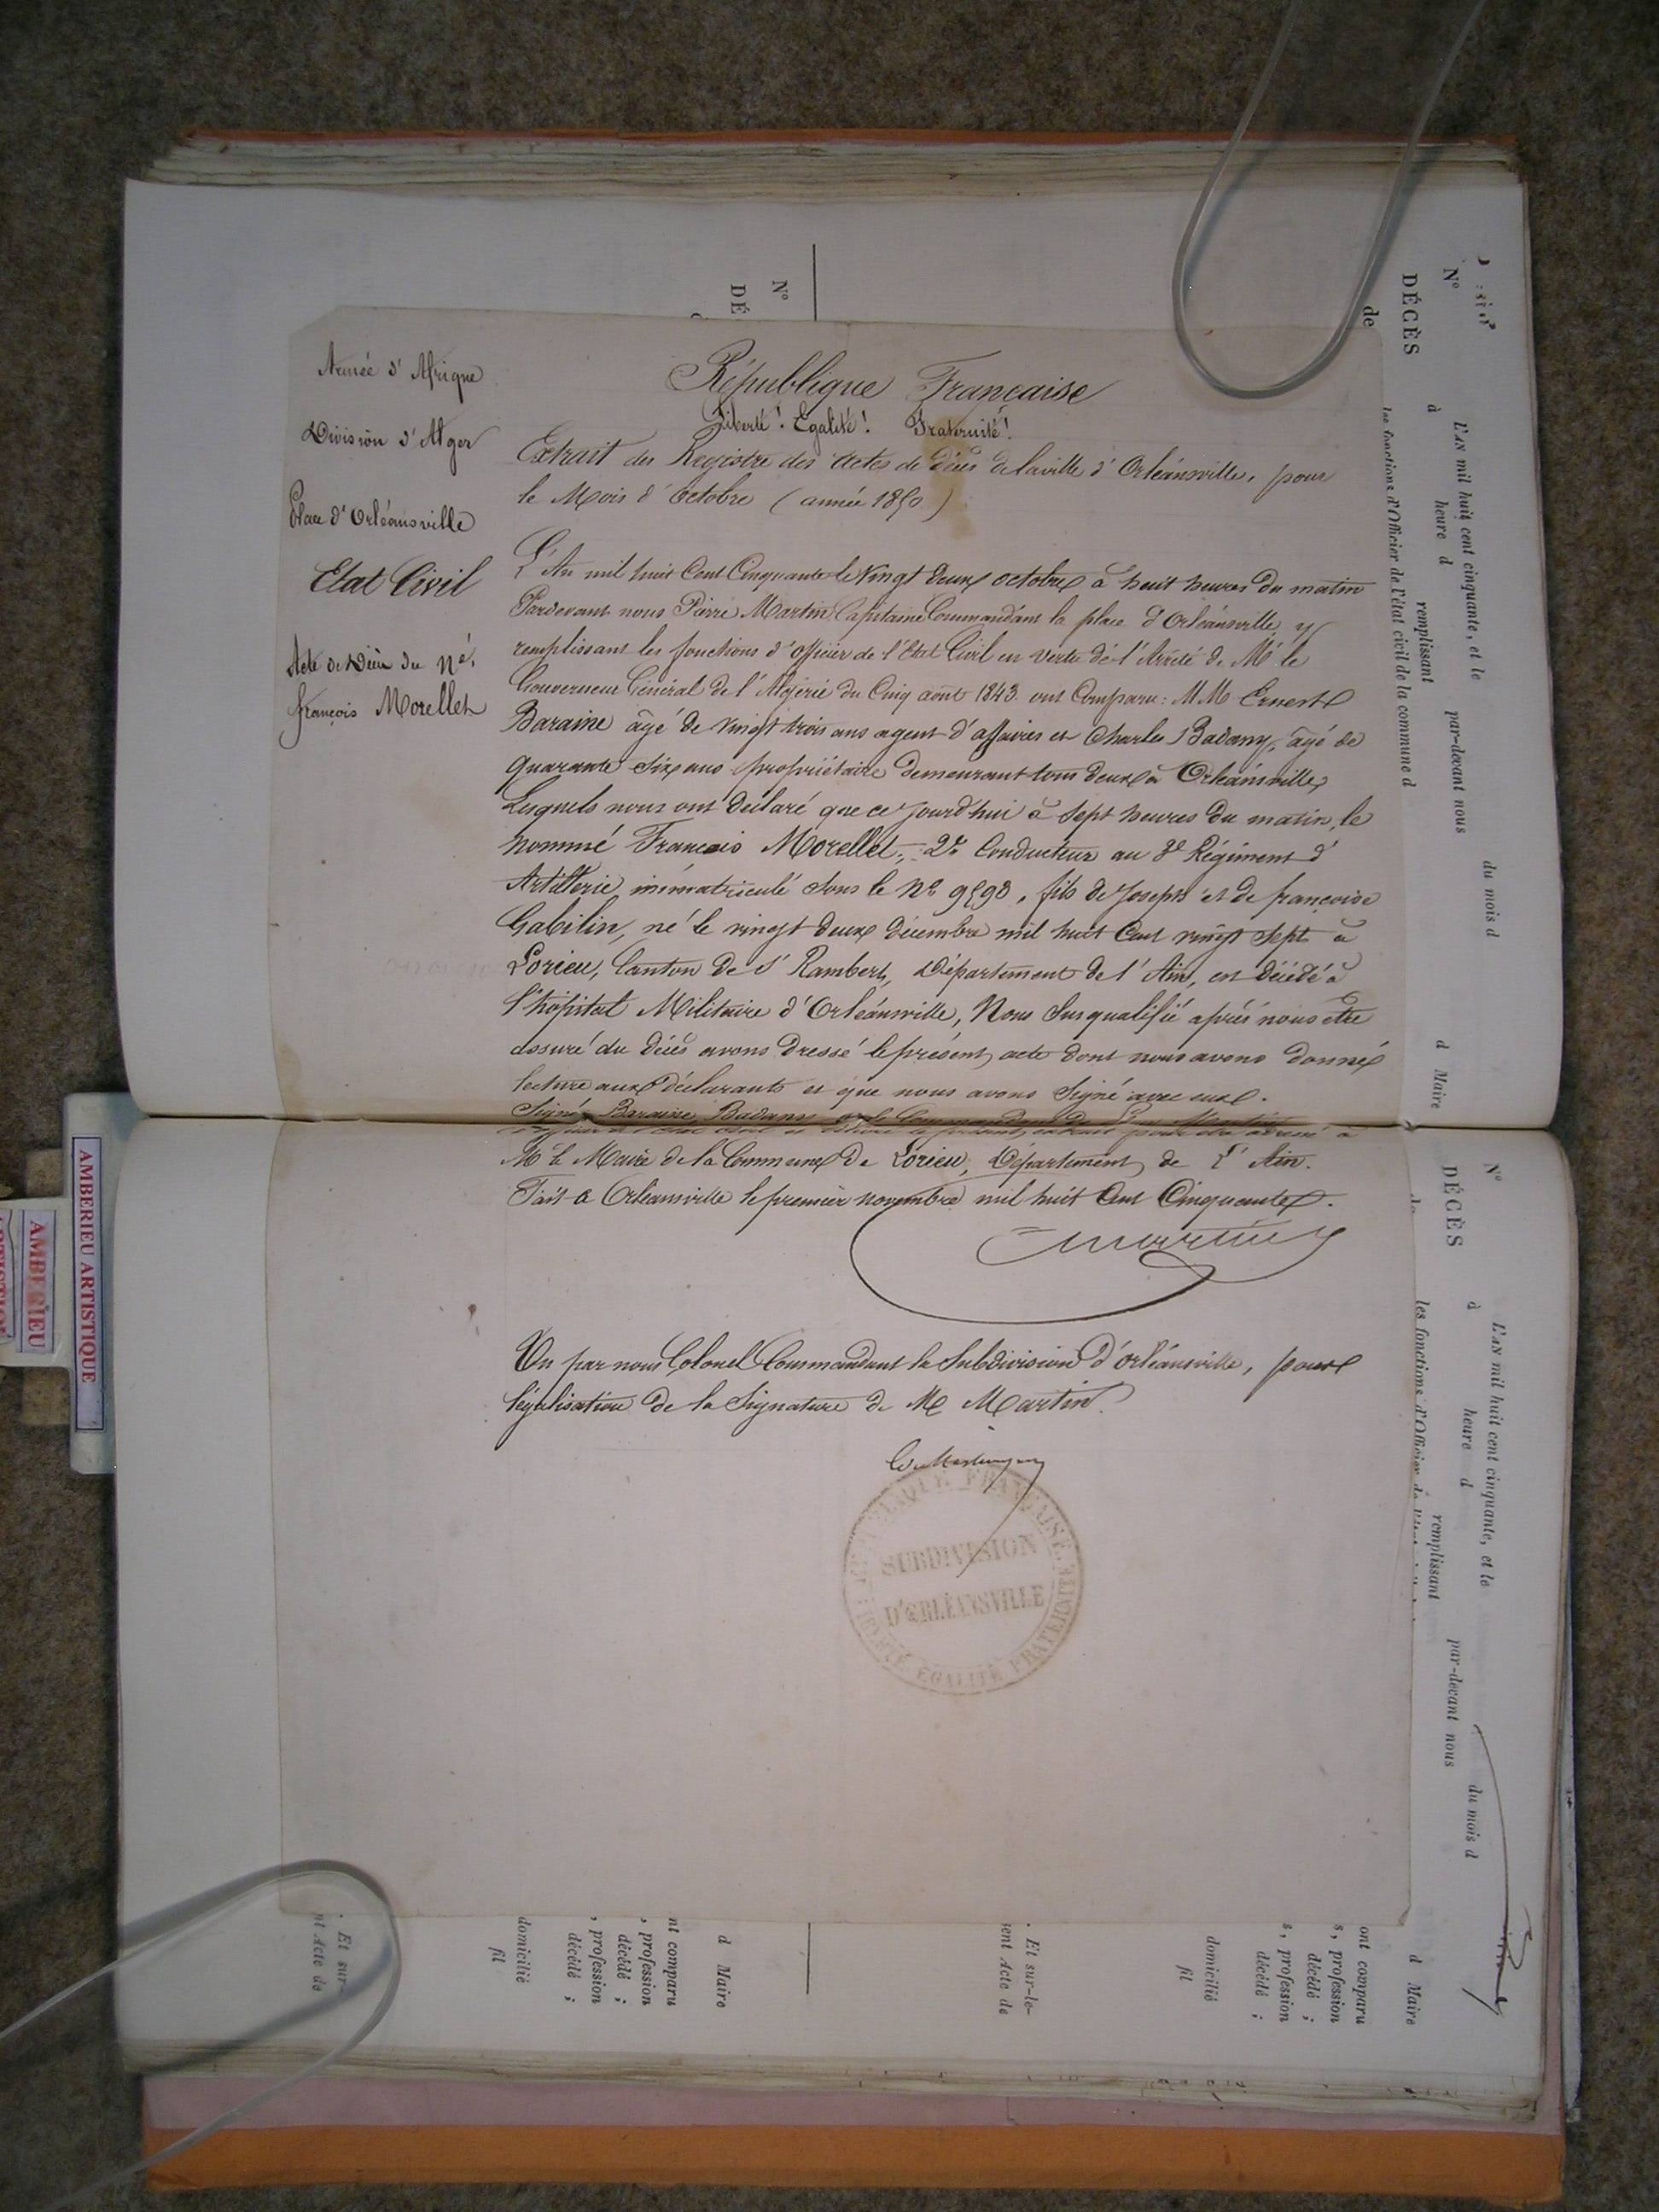 Armée d'Afrique
Division d'Alger
Place d'Orléansville
Etat Civil
Acte de Décès du né.
françois Morellet
République Française
Liberté! Egalité! Fraternité!
Extrait du Registre des Actes de Décès de la ville d'Orléansville, pour
le Mois d'Octobre (année 1850)
L'An mil huit Cent Cinquante le vingt deux octobre à huit heures du matin
Pardevant nous Pierre Martin, Capitaine Commandant la place d'Orléansville y
remplissant les fonctions d'officier de l'Etat Civil en vertu de l'Arrêté de Mr le
Gouverneur Général de l'Algérie du Cinq août 1843. ont Comparu: MM Ernest
Baraine âgé de vingt trois ans agent d'affaires et Charles Badany, âgé de
quarante six ans propriétaire demeurant tous deux à Orléansville,
Lesquels nous ont déclaré que ce jourd'hui à sept heures du matin, le
nommé François Morellet, 2e Conducteur au 3e Régiment d'
Artillerie, immatriculé sous le No 9593, fils de Joseph et de françoise
Gabilin, né le vingt deux décembre mil huit Cent vingt sept à
Lorieu, Canton de St Rambert, Département de l'Ain, est décédé à
l'hôpital Militaire d'Orléansville, Nous Susqualifié après nous être
assuré du décès avons dressé le présent acte dont nous avons donné
lecture aux déclarants et que nous avons signé avec eux.
Signé Baraine, Badany et le Commandant de Place Martin
Mr le Maire de la Commune de Lorieu, Département de l'Ain.
Fait à Orléansville le premier novembre mil huit Cent Cinquante.
Martin
Vu par nous Colonel Commandant la Subdivision d'orléansville, pour
légalisation de la Signature de Mr Martin.
RÉPUBLIQUE FRANÇAISE
SUBDIVISION
D'ORLÉANSVILLE
LIBERTÉ ÉGALITÉ FRATERNITÉ
No
DÉ
No
DÉCÈS
de
à
L'AN mil huit cent cinquante, et le
du mois d
heure d
par-devant nous
d Maire
remplissant
les fonctions d'Officier de l'état civil de la commune d
No
DÉCÈS
à
L'AN mil huit cent cinquante, et le
du mois d
heure d
par-devant nous
d Maire
remplissant
les fonctions d'Officier de l'état
ont comparu
s, profession
décédé ;
s, profession
décédé ;
domicilié
fil
. Et sur-le-
sent Acte de
d Maire
nt comparu
, profession
décédé ;
, profession
décédé ;
domicilié
fil
. Et sur-
nt Acte de
AMBERIEU ARTISTIQUE
AMBERIEU